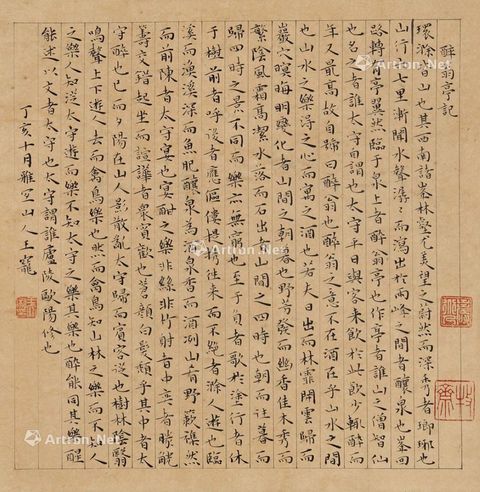 醉翁亭記
環滁皆山也其西南諸峯林壑尤美望之蔚然而深秀者瑯琊也
山行六七里漸聞水聲潺〻而瀉出於兩峰之間者釀泉也峯回
路轉有亭翼然臨于泉上者醉翁亭也作亭者誰山之僧智仙
也名之者誰太守自謂也太守平日與客來飲於此飲少輒醉而
年又最高故自號曰醉翁也醉翁之意不在酒在乎山水之間
也山水之樂得之心而寓之酒也若夫日出而林霏開雲歸而
巖穴暝晦明變化者山間之朝暮也野芳發而幽香佳木秀而
繁陰風霜高潔水落而石出者山間之四時也朝而往暮而
歸四時之景不同而樂亦無窮也至于負者歌於塗行者休
于樹前者呼後者應傴僂提攜往來而不絕者滁人遊也臨
溪而漁溪深而魚肥釀泉為酒泉香而酒冽山肴野蔌襍然
而前陳者太守宴也宴酣之樂非絲非竹射者中奕者勝觥
籌交錯起坐而諠譁者衆賓歡也蒼顏白髮頹乎其中者太
守醉也已而夕陽在山人影散亂太守歸而賓客從也樹林陰翳
鳴聲上下遊人去而禽鳥樂也然而禽鳥知山林之樂而不知人
之樂人知從太守遊而樂不知太守之樂其樂也醉能同其樂醒
能述以文者太守也太守謂誰廬陵歐陽修也
丁亥十月雅宜山人王寵
Artron.Net
Artron.Net
Artron.Net
Artron.Net